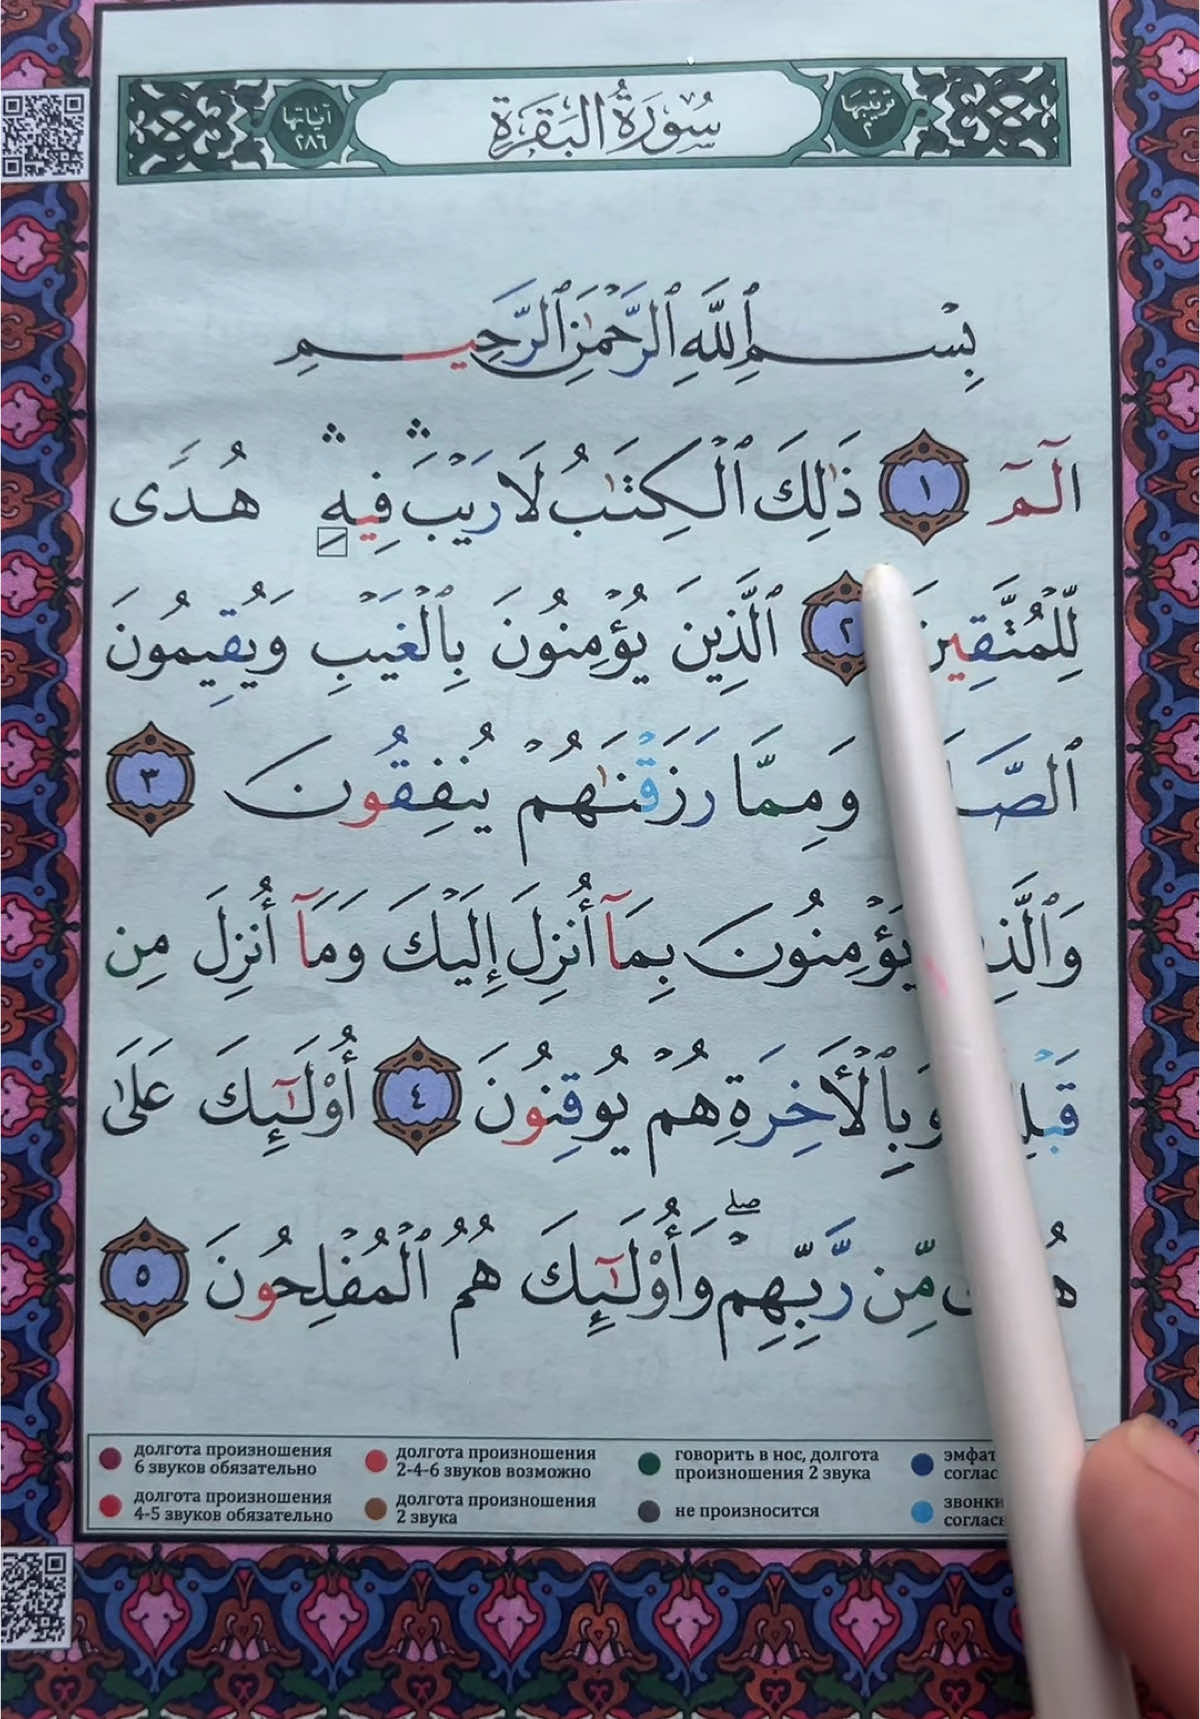 ترتيبها ٢
سُورَةُ البَقَرَةِ
آياتها ٢٨٦
بِسْمِ ٱللَّهِ ٱلرَّحْمَٰنِ ٱلرَّحِيمِ
الٓمٓ ١ ذَٰلِكَ ٱلْكِتَٰبُ لَا رَيْبَ ۛ فِيهِ ۛ هُدًى
لِّلْمُتَّقِينَ ٢ ٱلَّذِينَ يُؤْمِنُونَ بِٱلْغَيْبِ وَيُقِيمُونَ
وَمِمَّا رَزَقْنَٰهُمْ يُنفِقُونَ ٣
يُؤْمِنُونَ بِمَآ أُنزِلَ إِلَيْكَ وَمَآ أُنزِلَ مِن
وَبِٱلْأَخِرَةِ هُمْ يُوقِنُونَ ٤ أُوْلَٰٓئِكَ عَلَىٰ
مِّن رَّبِّهِمْ ۖ وَأُوْلَٰٓئِكَ هُمُ ٱلْمُفْلِحُونَ ٥
долгота произношения 6 звуков обязательно
долгота произношения 2-4-6 звуков возможно
говорить в нос, долгота произношения 2 звука
долгота произношения 4-5 звуков обязательно
долгота произношения 2 звука
не произносится